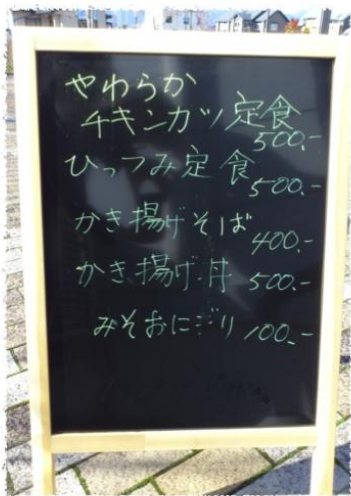 やわらか
チキンカツ定食
500.-
ひっつみ定食
500.-
かき揚げそば
400.-
かき揚げ丼 500.-
みそおにぎり 100.-